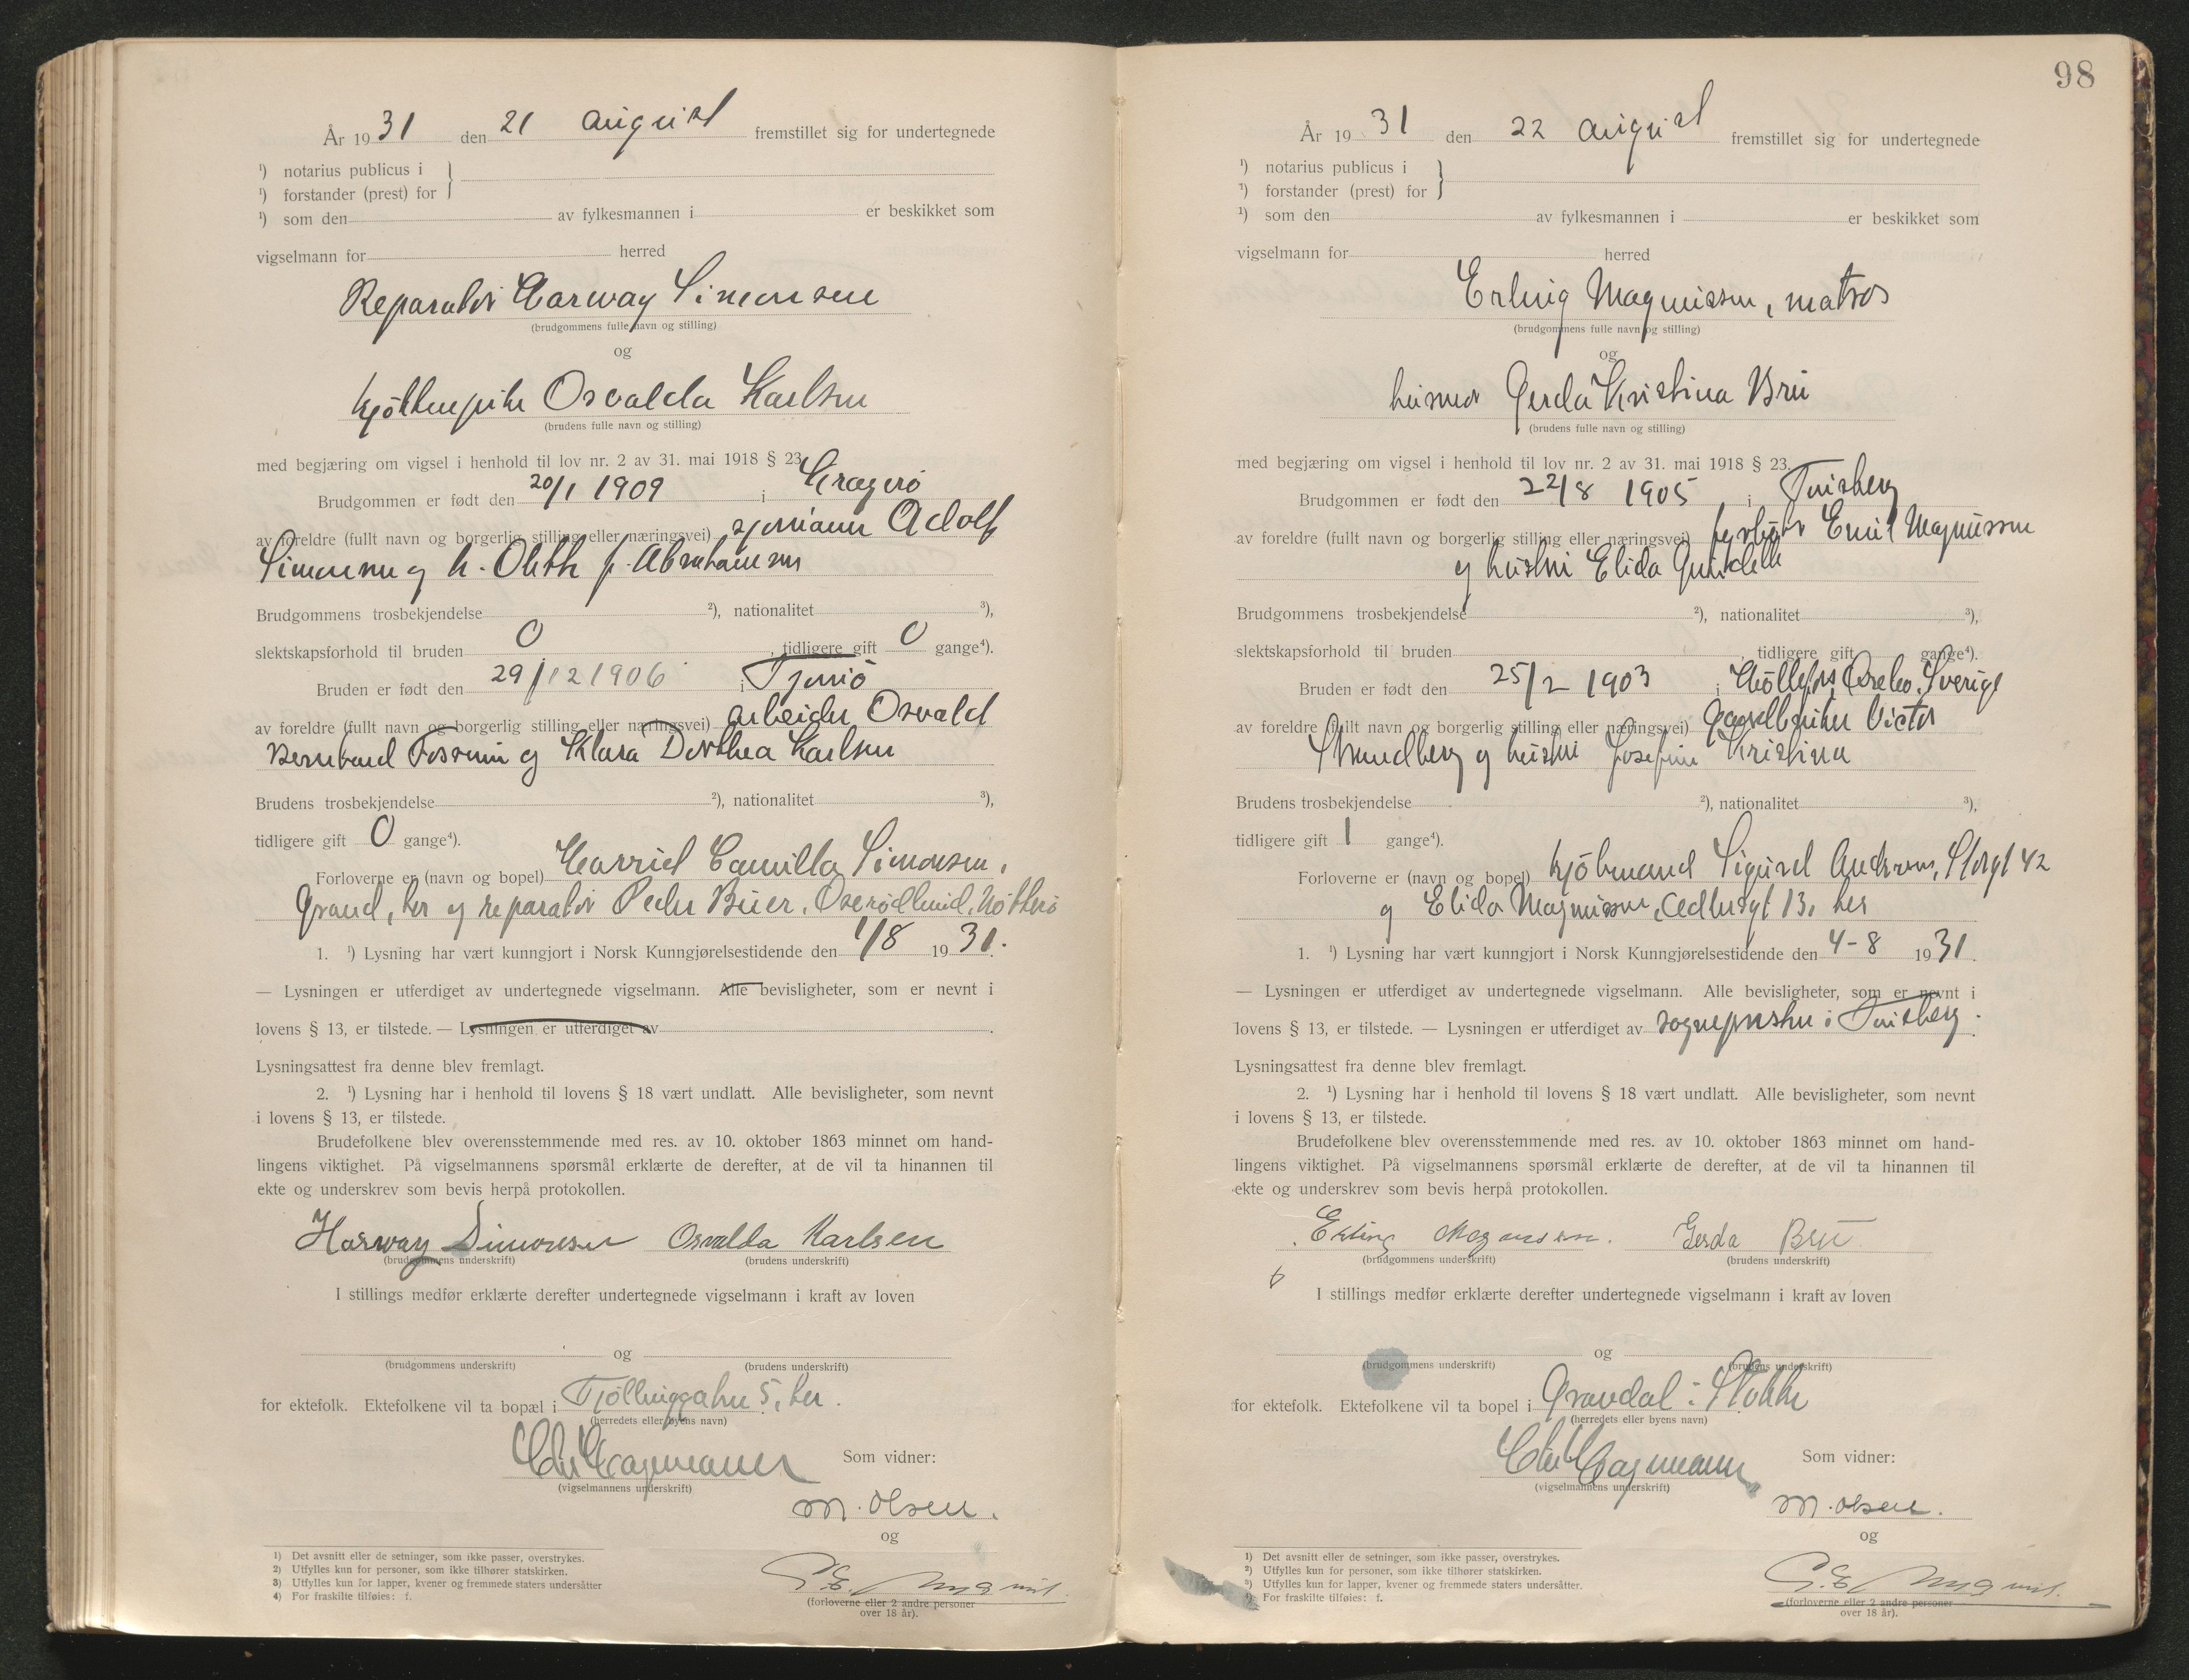 År 1931 den 21 august fremstillet sig for undertegnede
¹) notarius publicus i
¹) forstander (prest) for
¹) som den av fylkesmannen i er beskikket som
vigselmann for herred
Reparatør Harway Simonsen
(brudgommens fulle navn og stilling)
og
kjøkkenpike Osvalda Karlsen
(brudens fulle navn og stilling)
med begjæring om vigsel i henhold til lov nr. 2 av 31. mai 1918 § 23.
Brudgommen er født den 20/1 1909 i Kragerø
av foreldre (fullt navn og borgerlig stilling eller næringsvei) sjømann Adolf
Simonsen og h. f. Abrahamsen
Brudgommens trosbekjendelse ²), nationalitet ³),
slektskapsforhold til bruden 0, tidligere gift 0 gange⁴).
Bruden er født den 29/12 1906 i Tjømø
av foreldre (fullt navn og borgerlig stilling eller næringsvei) arbeider Osvald
Bernhard og Klara Dorthea Karlsen
Brudens trosbekjendelse ²), nationalitet ³),
tidligere gift 0 gange⁴).
Forloverne er (navn og bopel) Harriet Camilla Simonsen,
Grand, her og reparatør Peder Buer, Nøtterø
1. ¹) Lysning har vært kunngjort i Norsk Kunngjørelsestidende den 1/8 1931.
— Lysningen er utferdiget av undertegnede vigselmann. Alle bevisligheter, som er nevnt i
lovens § 13, er tilstede. — Lysningen er utferdiget av
Lysningsattest fra denne blev fremlagt.
2. ¹) Lysning har i henhold til lovens § 18 vært undlatt. Alle bevisligheter, som nevnt
i lovens § 13, er tilstede.
Brudefolkene blev overensstemmende med res. av 10. oktober 1863 minnet om hand-
lingens viktighet. På vigselmannens spørsmål erklærte de derefter, at de vil ta hinannen til
ekte og underskrev som bevis herpå protokollen.
Harway Simonsen Osvalda Karlsen
(brudgommens underskrift) (brudens underskrift)
I stillings medfør erklærte derefter undertegnede vigselmann i kraft av loven
og
(brudgommens underskrift) (brudens underskrift)
for ektefolk. Ektefolkene vil ta bopæl i Tjøllinggaten 5, her.
(herredets eller byens navn)
Som vidner:
(vigselmannens underskrift)
M. Olsen.
og
(forloverne eller 2 andre personer
over 18 år).
1) Det avsnitt eller de setninger, som ikke passer, overstrykes.
2) Utfylles kun for personer, som ikke tilhører statskirken.
3) Utfylles kun for lapper, kvener og fremmede staters undersåtter
4) For fraskilte tilføies: f.
98
År 1931 den 22 august fremstillet sig for undertegnede
¹) notarius publicus i
¹) forstander (prest) for
¹) som den av fylkesmannen i er beskikket som
vigselmann for herred
Erling Magnussen, matros
(brudgommens fulle navn og stilling)
og
husmor Gerda Kristina Bru
(brudens fulle navn og stilling)
med begjæring om vigsel i henhold til lov nr. 2 av 31. mai 1918 § 23.
Brudgommen er født den 22/8 1905 i Tønsberg
av foreldre (fullt navn og borgerlig stilling eller næringsvei) fyrbøter Emil Magnussen
og hustru Elida
Brudgommens trosbekjendelse ²), nationalitet ³),
slektskapsforhold til bruden , tidligere gift gange⁴).
Bruden er født den 25/2 1903 i Ørebro, Sverige
av foreldre (fullt navn og borgerlig stilling eller næringsvei) Victor
og hustru Josefine Kristina
Brudens trosbekjendelse ²), nationalitet ³),
tidligere gift 1 gange⁴).
Forloverne er (navn og bopel) kjøbmand Sigurd Andersen, Storgt 42
og Elida Magnussen, 13, her
1. ¹) Lysning har vært kunngjort i Norsk Kunngjørelsestidende den 4-8 1931.
— Lysningen er utferdiget av undertegnede vigselmann. Alle bevisligheter, som er nevnt i
lovens § 13, er tilstede. — Lysningen er utferdiget av sognepresten i Tønsberg.
Lysningsattest fra denne blev fremlagt.
2. ¹) Lysning har i henhold til lovens § 18 vært undlatt. Alle bevisligheter, som nevnt
i lovens § 13, er tilstede.
Brudefolkene blev overensstemmende med res. av 10. oktober 1863 minnet om hand-
lingens viktighet. På vigselmannens spørsmål erklærte de derefter, at de vil ta hinannen til
ekte og underskrev som bevis herpå protokollen.
Erling Magnussen. Gerda Bru
(brudgommens underskrift) (brudens underskrift)
I stillings medfør erklærte derefter undertegnede vigselmann i kraft av loven
og
(brudgommens underskrift) (brudens underskrift)
for ektefolk. Ektefolkene vil ta bopel i Gravdal i Stokke
(herredets eller byens navn)
Som vidner:
(vigselmannens underskrift)
M. Olsen.
og
(forloverne eller 2 andre personer
over 18 år).
1) Det avsnitt eller de setninger, som ikke passer, overstrykes.
2) Utfylles kun for personer, som ikke tilhører statskirken.
3) Utfylles kun for lapper, kvener og fremmede staters undersåtter.
4) For fraskilte tilføies: f.